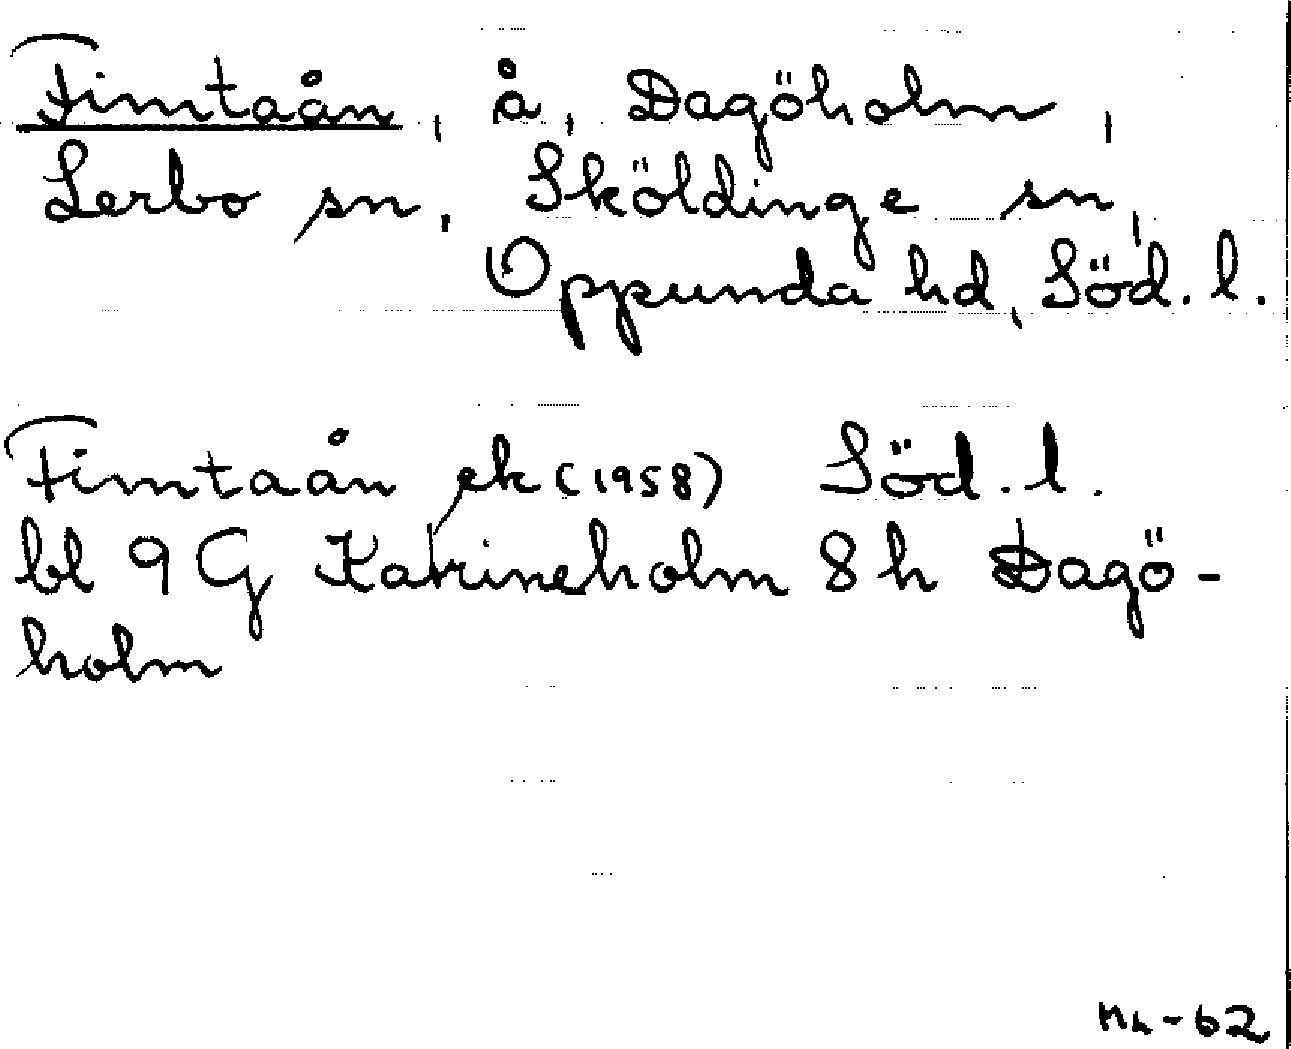 Fimtaån, å, Dagöholm,
Lerbo sn, Sköldinge sn,
Oppunda hd, Söd. l.
Fimtaån ek (1958) Söd. l.
bl 9 G Katrineholm 8 h Dagö-
holm
-62